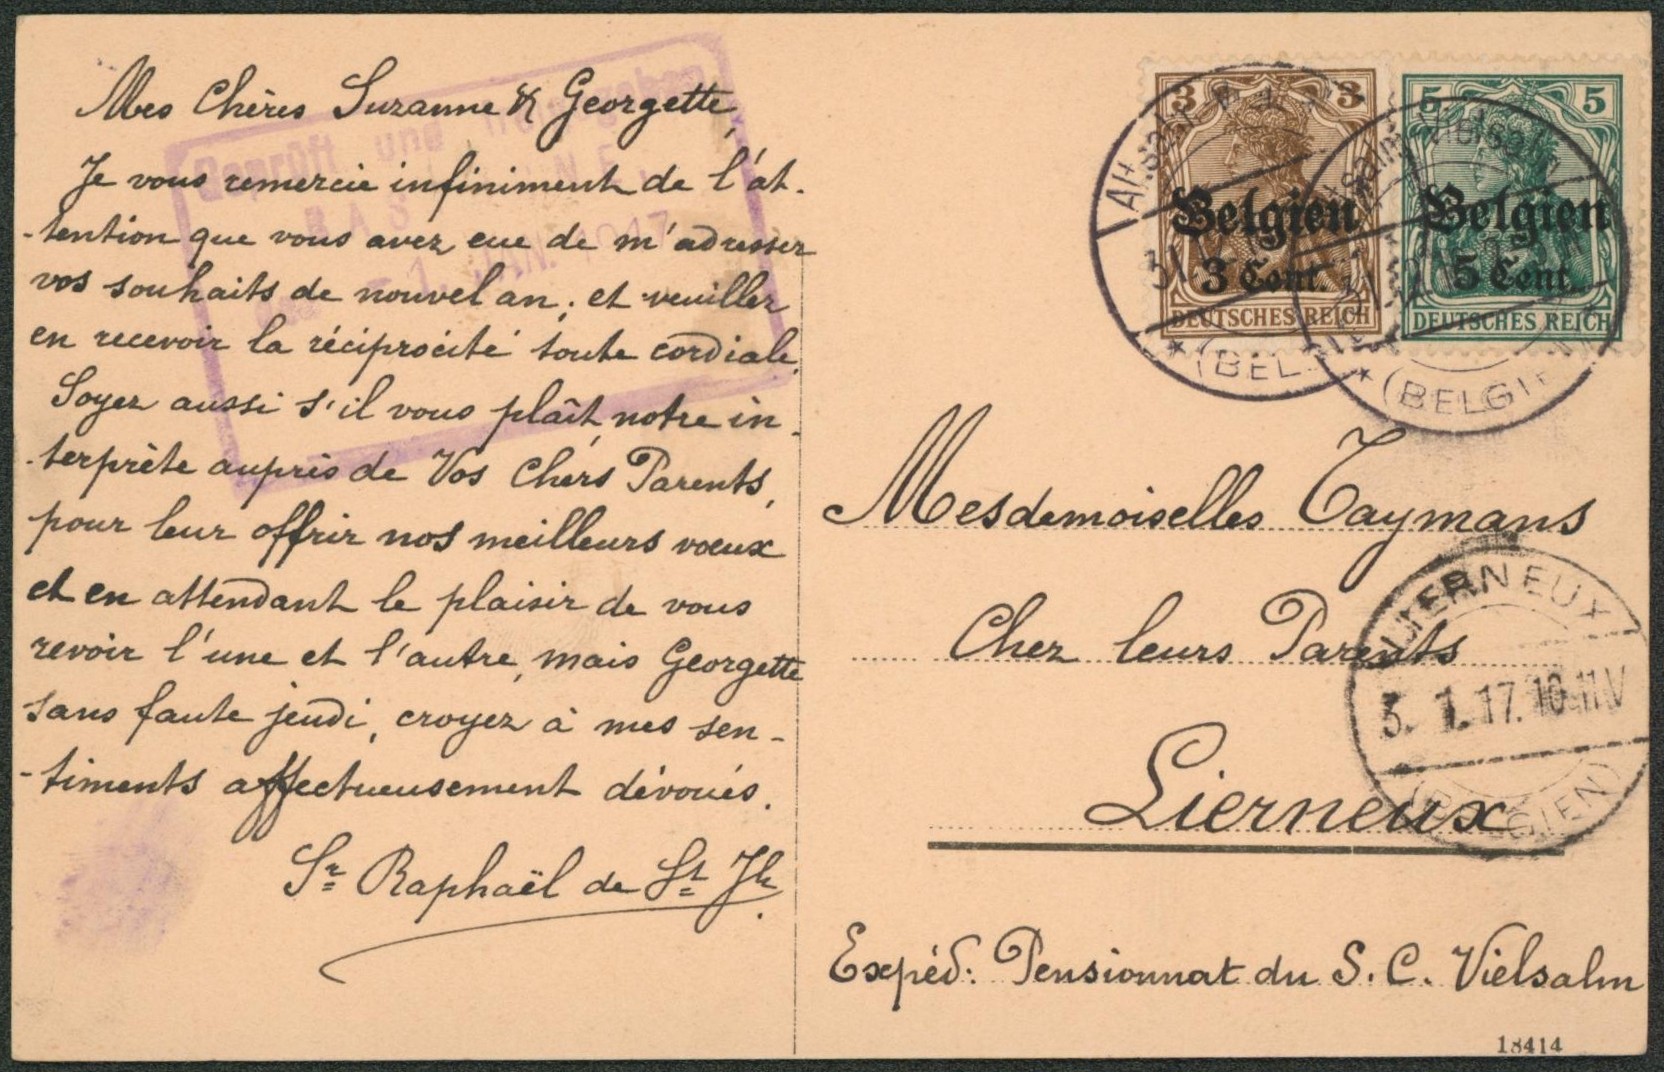 Mes Chères Suzanne & Georgette,
Je vous remercie infiniment de l'at-
-tention que vous avez eue de m'adresser
vos souhaits de nouvel an; et veuillez
en recevoir la réciprocité toute cordiale.
Soyez aussi s'il vous plaît, notre in-
-terprète auprès de Vos Chers Parents,
pour leur offrir nos meilleurs vœux
et en attendant le plaisir de vous
revoir l'une et l'autre, mais Georgette
sans faute jeudi, croyez à mes sen-
-timents affectueusement dévoués.
Sr Raphaël de St Jh.
Geprüft und
JAN. 1917
3 3
Belgien
3 Cent.
DEUTSCHES REICH
5 5
Belgien
5 Cent.
DEUTSCHES REICH
(BELGIEN)
Mesdemoiselles Taymans
Chez leurs Parents
Lierneux
LIERNEUX
3. 1. 17. 10-11 V
(BELGIEN)
Expéd: Pensionnat du S. C. Vielsalm
18414